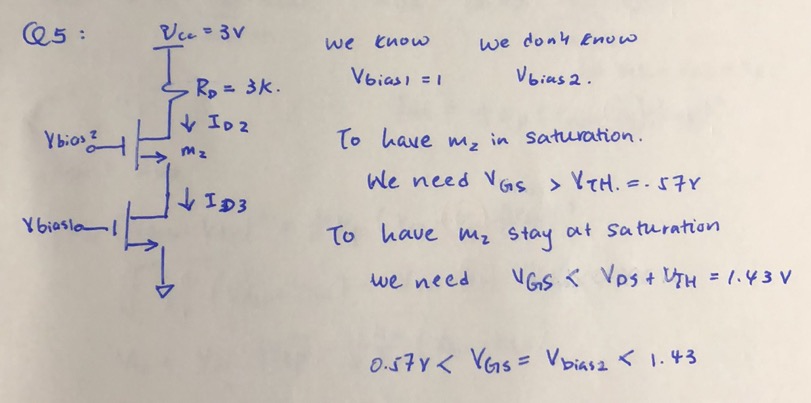 Q5:
Vcc = 3V
RD = 3K.
ID2
Vbias2
m2
ID3
Vbias1
we know we don't know
Vbias1 = 1 Vbias2.
To have m2 in saturation.
We need VGS > VTH. = .57V
To have m2 stay at saturation
we need VGS < VDS + VTH = 1.43 V
0.57V < VGS = Vbias2 < 1.43